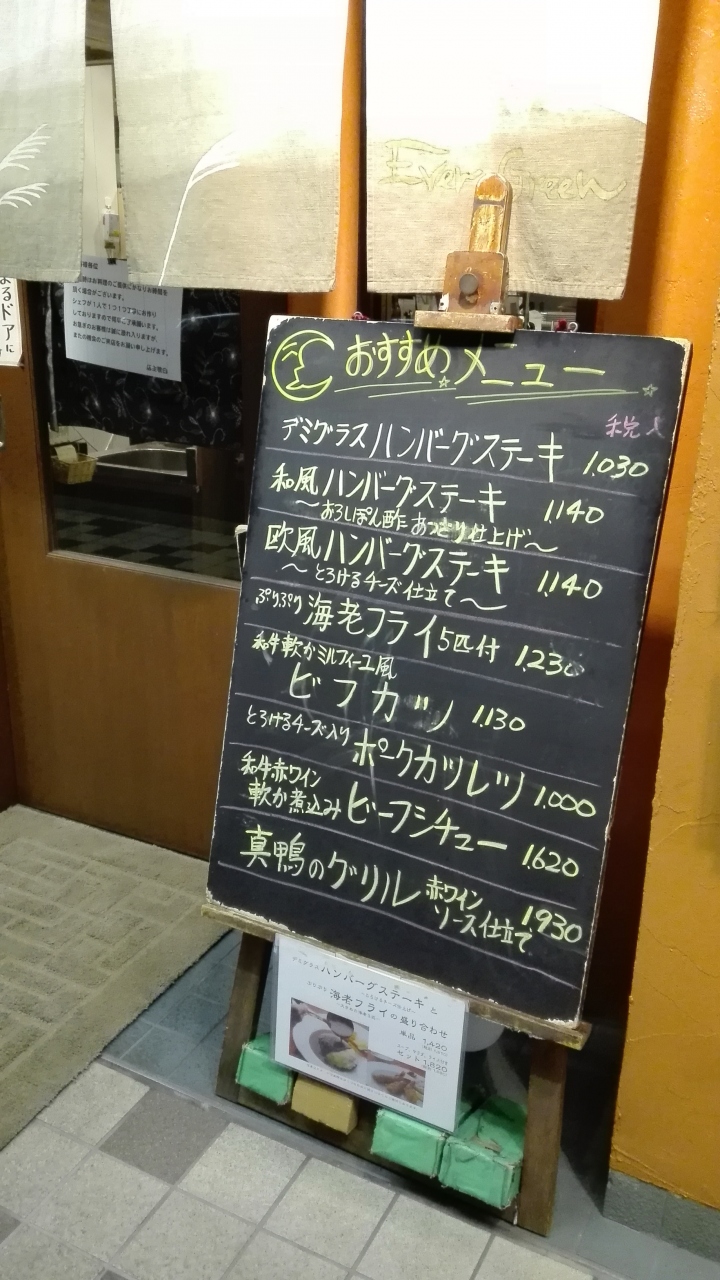 Ever Green
まるドアに
シェフが1人で1つ1つ丁寧にお作り
おすすめメニュー
税入
デミグラスハンバーグステーキ 1.030
和風ハンバーグステーキ 1.140
〜おろしぽん酢あっさり仕上げ〜
欧風ハンバーグステーキ 1.140
〜とろけるチーズ仕立て〜
ぷりぷり海老フライ5匹付 1.230
和牛軟かミルフィーユ風
ビフカツ 1.130
とろけるチーズ入りポークカツレツ 1.000
和牛赤ワイン
軟か煮込みビーフシチュー 1.620
真鴨のグリル 赤ワイン
ソース仕立て 1.930
ハンバーグステーキと
海老フライの盛り合わせ
単品 1,420
セット 1,820